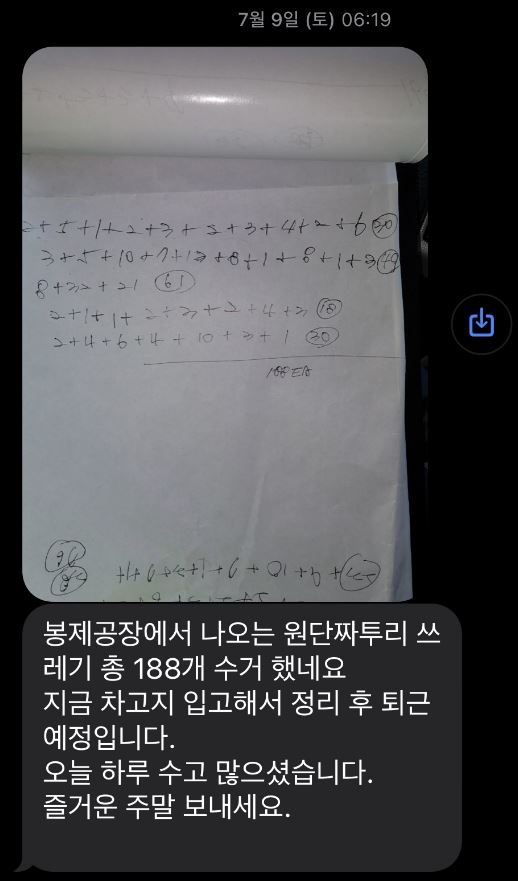 7월 9일 (토) 06:19
+5+1+2+3+2+3+4+2+6 30
3+5+10+7+12+8+1+8+1+3 49
8+32+21 61
2+1+1+2+3+2+4+3 18
2+4+6+4+10+3+1 30
188 EA
봉제공장에서 나오는 원단짜투리 쓰
레기 총 188개 수거 했네요
지금 차고지 입고해서 정리 후 퇴근
예정입니다.
오늘 하루 수고 많으셨습니다.
즐거운 주말 보내세요.